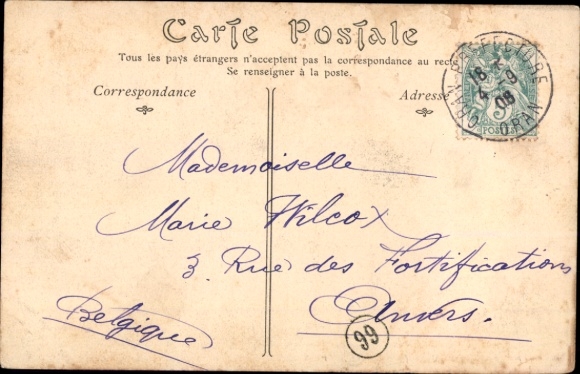 Carte Postale
Tous les pays étrangers n'acceptent pas la correspondance au recto
Se renseigner à la poste.
Correspondance
Adresse
ORAN-PRÉFECTURE
18
4 -9
08
ORAN
5
POSTES
Mademoiselle
Marie Wilcox
3 Rue des Fortifications
Anvers.
Belgique
99